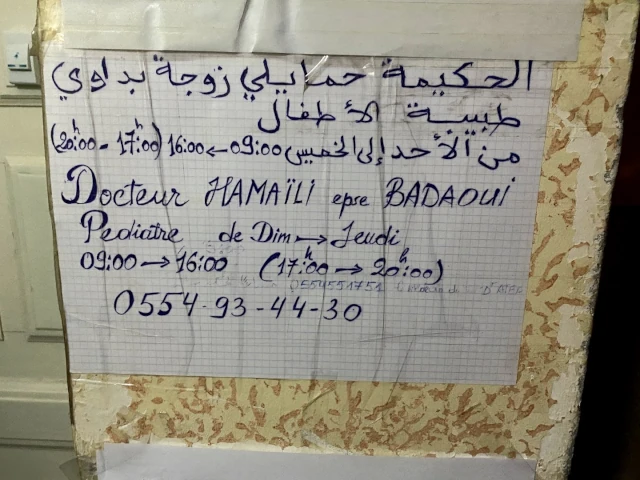 الحكيمة حمايلي زوجة بداوي
طبيبة الأطفال
من الأحد إلى الخميس 09:00 → 16:00 (17:00ʰ - 20:00ʰ)
Docteur HAMAÏLI epse BADAOUI
Pediatre de Dim → Jeudi
09:00 → 16:00 (17:00ʰ → 20:00ʰ)
0554551751
0554-93-44-30